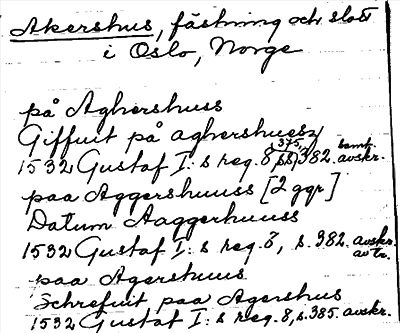 Akershus, fästning och slott
i Oslo, Norge
på Aghershuss
Giffuit på aghershuesz
1532 Gustaf I:s reg. 8, ss. 375, 382. bemk. avskr.
paa Aggershuuss [2 ggr]
Datum Aaggerhuuss
1532 Gustaf I:s reg. 8, s. 382. avskr. av tr.
paa Agershuus
Schrefuit paa Agershus
1532 Gustaf I:s reg. 8, s. 385. avskr.